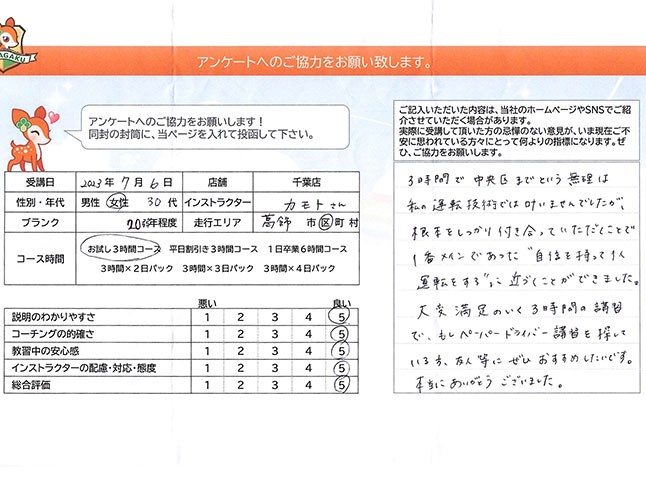 AGAKU
アンケートへのご協力をお願い致します。
アンケートへのご協力をお願いします！
同封の封筒に、当ページを入れて投函して下さい。
受講日 2023年 7月 6日 店舗 千葉店
性別・年代 男性 女性 30代 インストラクター カモト さん
ブランク 年程度 走行エリア 市 区 町 村
コース時間 お試し3時間コース 平日割引き3時間コース 1日卒業6時間コース
3時間×2日パック 3時間×3日パック 3時間×4日パック
悪い 良い
説明のわかりやすさ 1 2 3 4 5
コーチングの的確さ 1 2 3 4 5
教習中の安心感 1 2 3 4 5
インストラクターの配慮・対応・態度 1 2 3 4 5
総合評価 1 2 3 4 5
ご記入いただいた内容は、当社のホームページやSNSでご紹介
させていただく場合があります。
実際に受講して頂いた方の忌憚のない意見が、いま現在ご不
安に思われている方々にとって何よりの指標になります。ぜ
ひ、ご協力をお願いします。
3時間で中央区までという無理は
私の運転技術では叶いませんでしたが、
根本をしっかり付き合っていただくことで
1番メインであった"自信を持って1人
運転をする"に近づくことができました。
大変満足のいく3時間の講習
で、もしペーパードライバー講習を探して
いる方、友人等にぜひおすすめしたいです。
本当にありがとうございました。